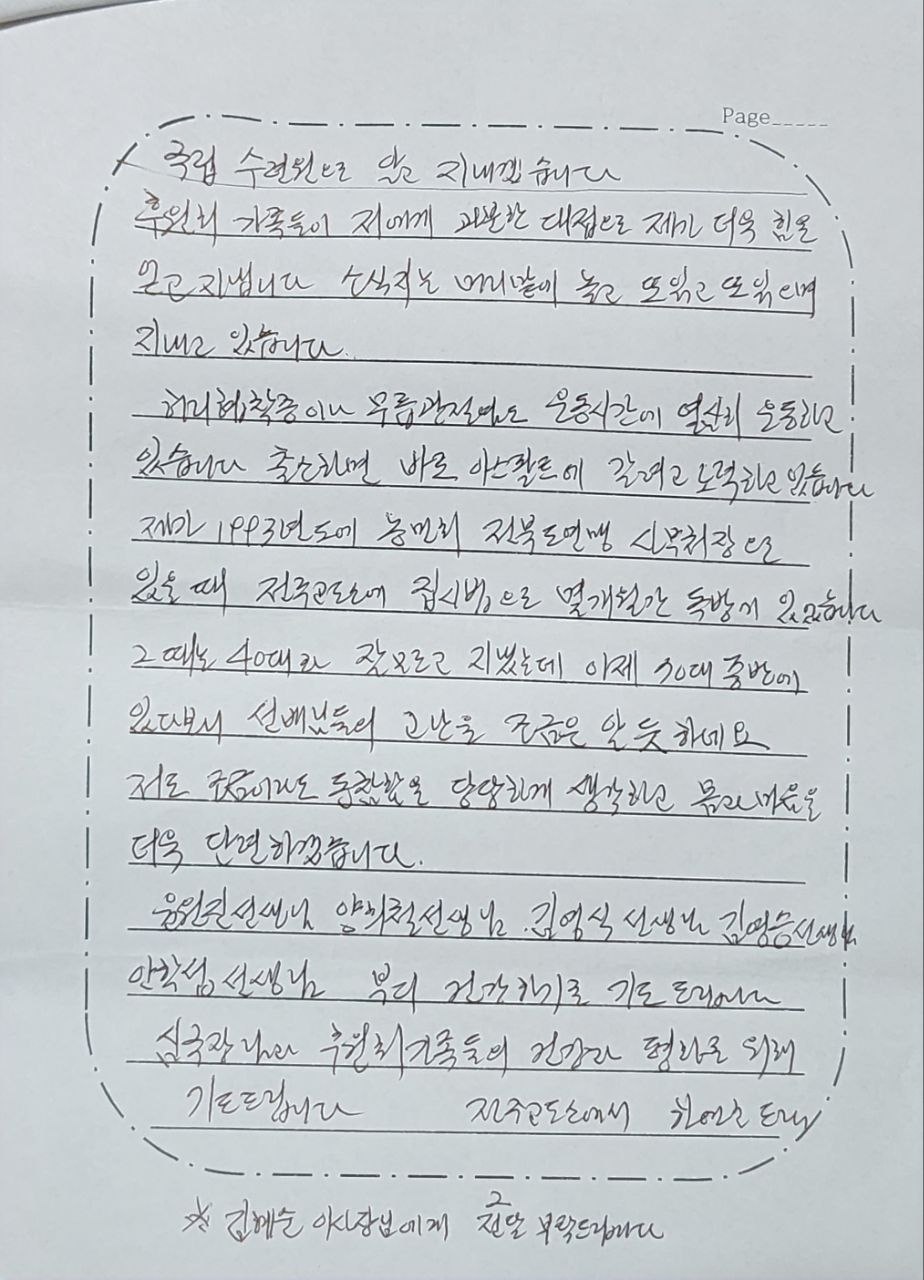 Page_____
국립 수련원으로 알고 지내겠습니다
후원회 가족들이 저에게 과분한 대접으로 제가 더욱 힘을
얻고 지냅니다 소식지는 머리맡에 놓고 또 읽고 또 읽으며
지내고 있습니다.
허리협착증이나 무릎관절염도 운동시간에 열심히 운동하고
있습니다 출소하면 바로 아스팔트에 갈려고 노력하고 있습니다
제가 1993년도에 농민회 전북도연맹 사무처장으로
있을 때 전주교도소에 집시법으로 몇개월간 독방에 있었습니다
그때는 40대라 잘 모르고 지냈는데 이제 70대 중반에
있다보니 선배님들의 고난을 조금은 알 듯 하네요
저도 조금이라도 동참함을 당당하게 생각하고 몸과 마음을
더욱 단련하겠습니다.
양희철선생님. 김영식 선생님 김영승선생님
안학섭 선생님 부디 건강하기로 기도드립니다
심국장님과 후원회가족들의 건강과 평화를 위해
기도드립니다 전주교도소에서 드림
※ 김혜순 이사장님에게 전달 부탁드립니다
2